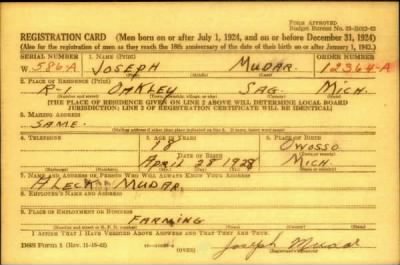 FORM APPROVED
REGISTRATION CARD (Men born on or after July 1, 1924, and on or before December 31, 1924)
(Also for the registration of men as they reach the 18th anniversary of the date of their birth on or after January 1, 1942.)
SERIAL NUMBER 1. NAME (Print) ORDER NUMBER
W 586-A JOSEPH MUDAR. 12364-A
2. PLACE OF RESIDENCE (Print)
R-1 OAKLEY SAG. MICH.
[THE PLACE OF RESIDENCE GIVEN ON LINE 2 ABOVE WILL DETERMINE LOCAL BOARD
JURISDICTION; LINE 2 OF REGISTRATION CERTIFICATE WILL BE IDENTICAL]
3. MAILING ADDRESS
SAME.
4. TELEPHONE 5. AGE IN YEARS 6. PLACE OF BIRTH
18 OWOSSO
DATE OF BIRTH
APRIL 28 MICH.
7. NAME AND ADDRESS OF PERSON WHO WILL ALWAYS KNOW YOUR ADDRESS
ALECK MUDAR.
8. EMPLOYER'S NAME AND ADDRESS
9. PLACE OF EMPLOYMENT OR BUSINESS
FARMING
I AFFIRM THAT I HAVE VERIFIED ABOVE ANSWERS AND THAT THEY ARE TRUE.
DSS FORM 1 Joseph